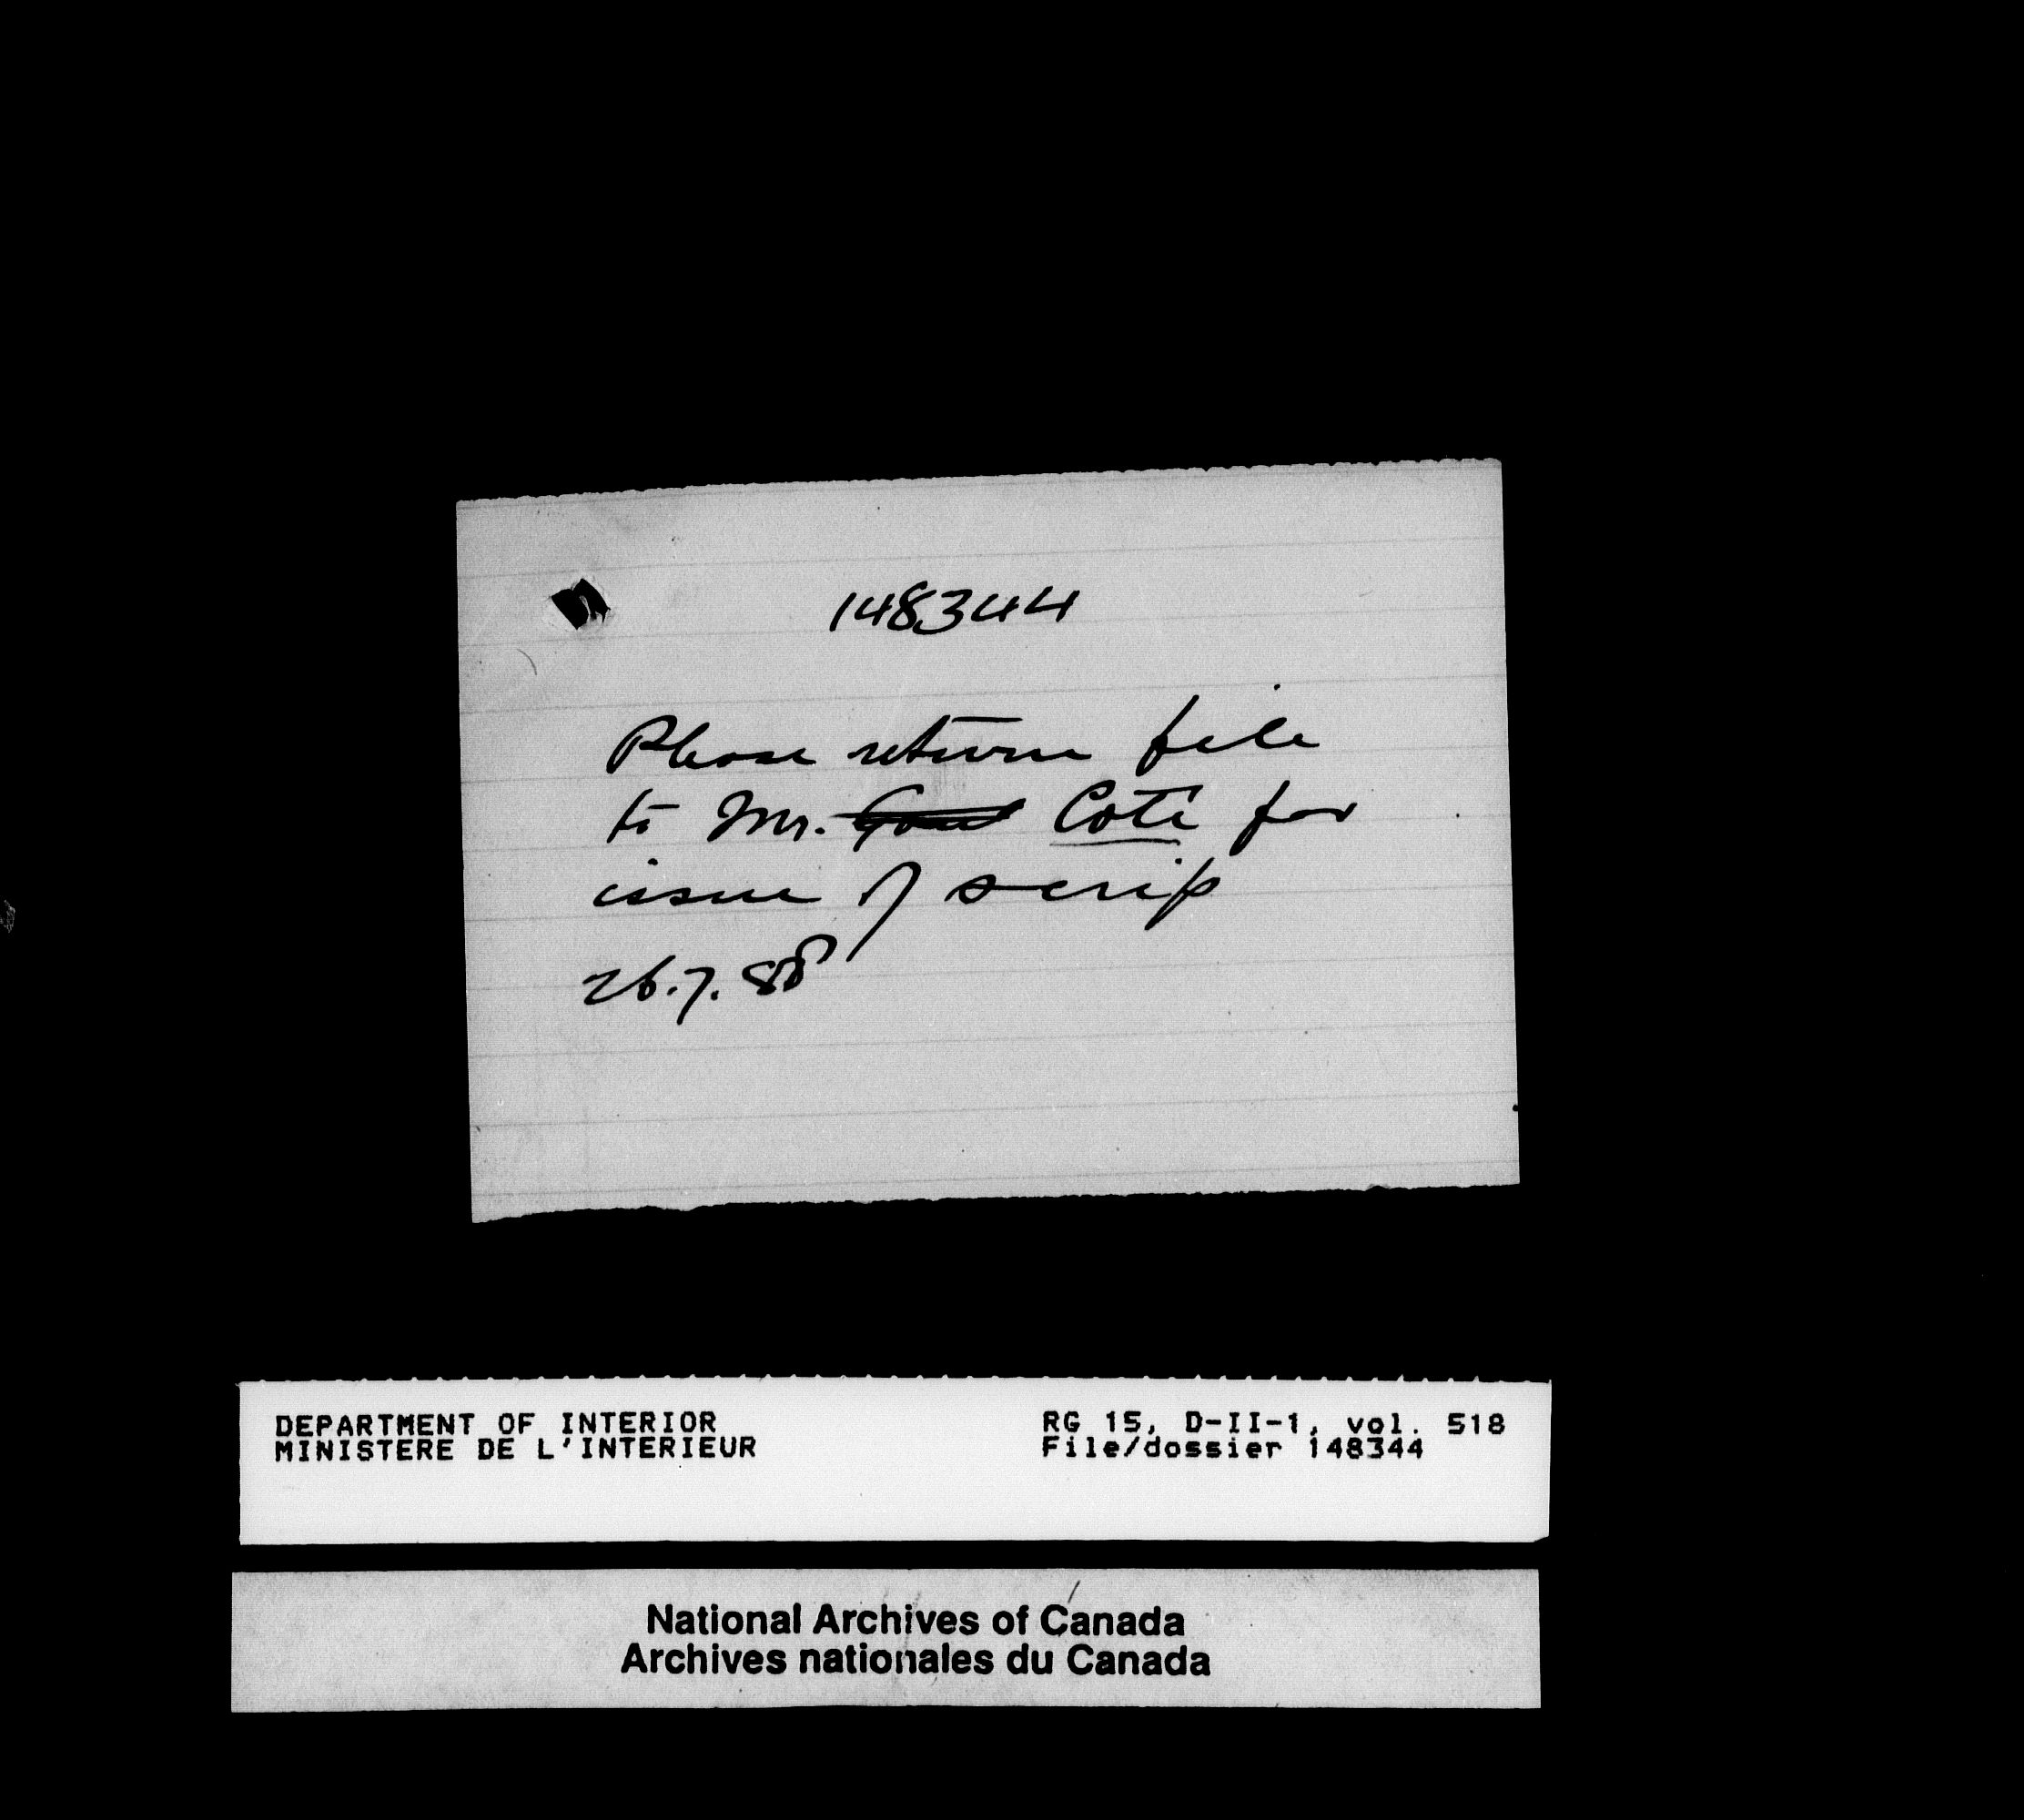 148344
Please return file
to Mr. Coté for
issue of scrip
26.7.88
DEPARTMENT OF INTERIOR
MINISTERE DE L'INTERIEUR
RG 15, D-II-1, vol. 518
File/dossier 148344
National Archives of Canada
Archives nationales du Canada